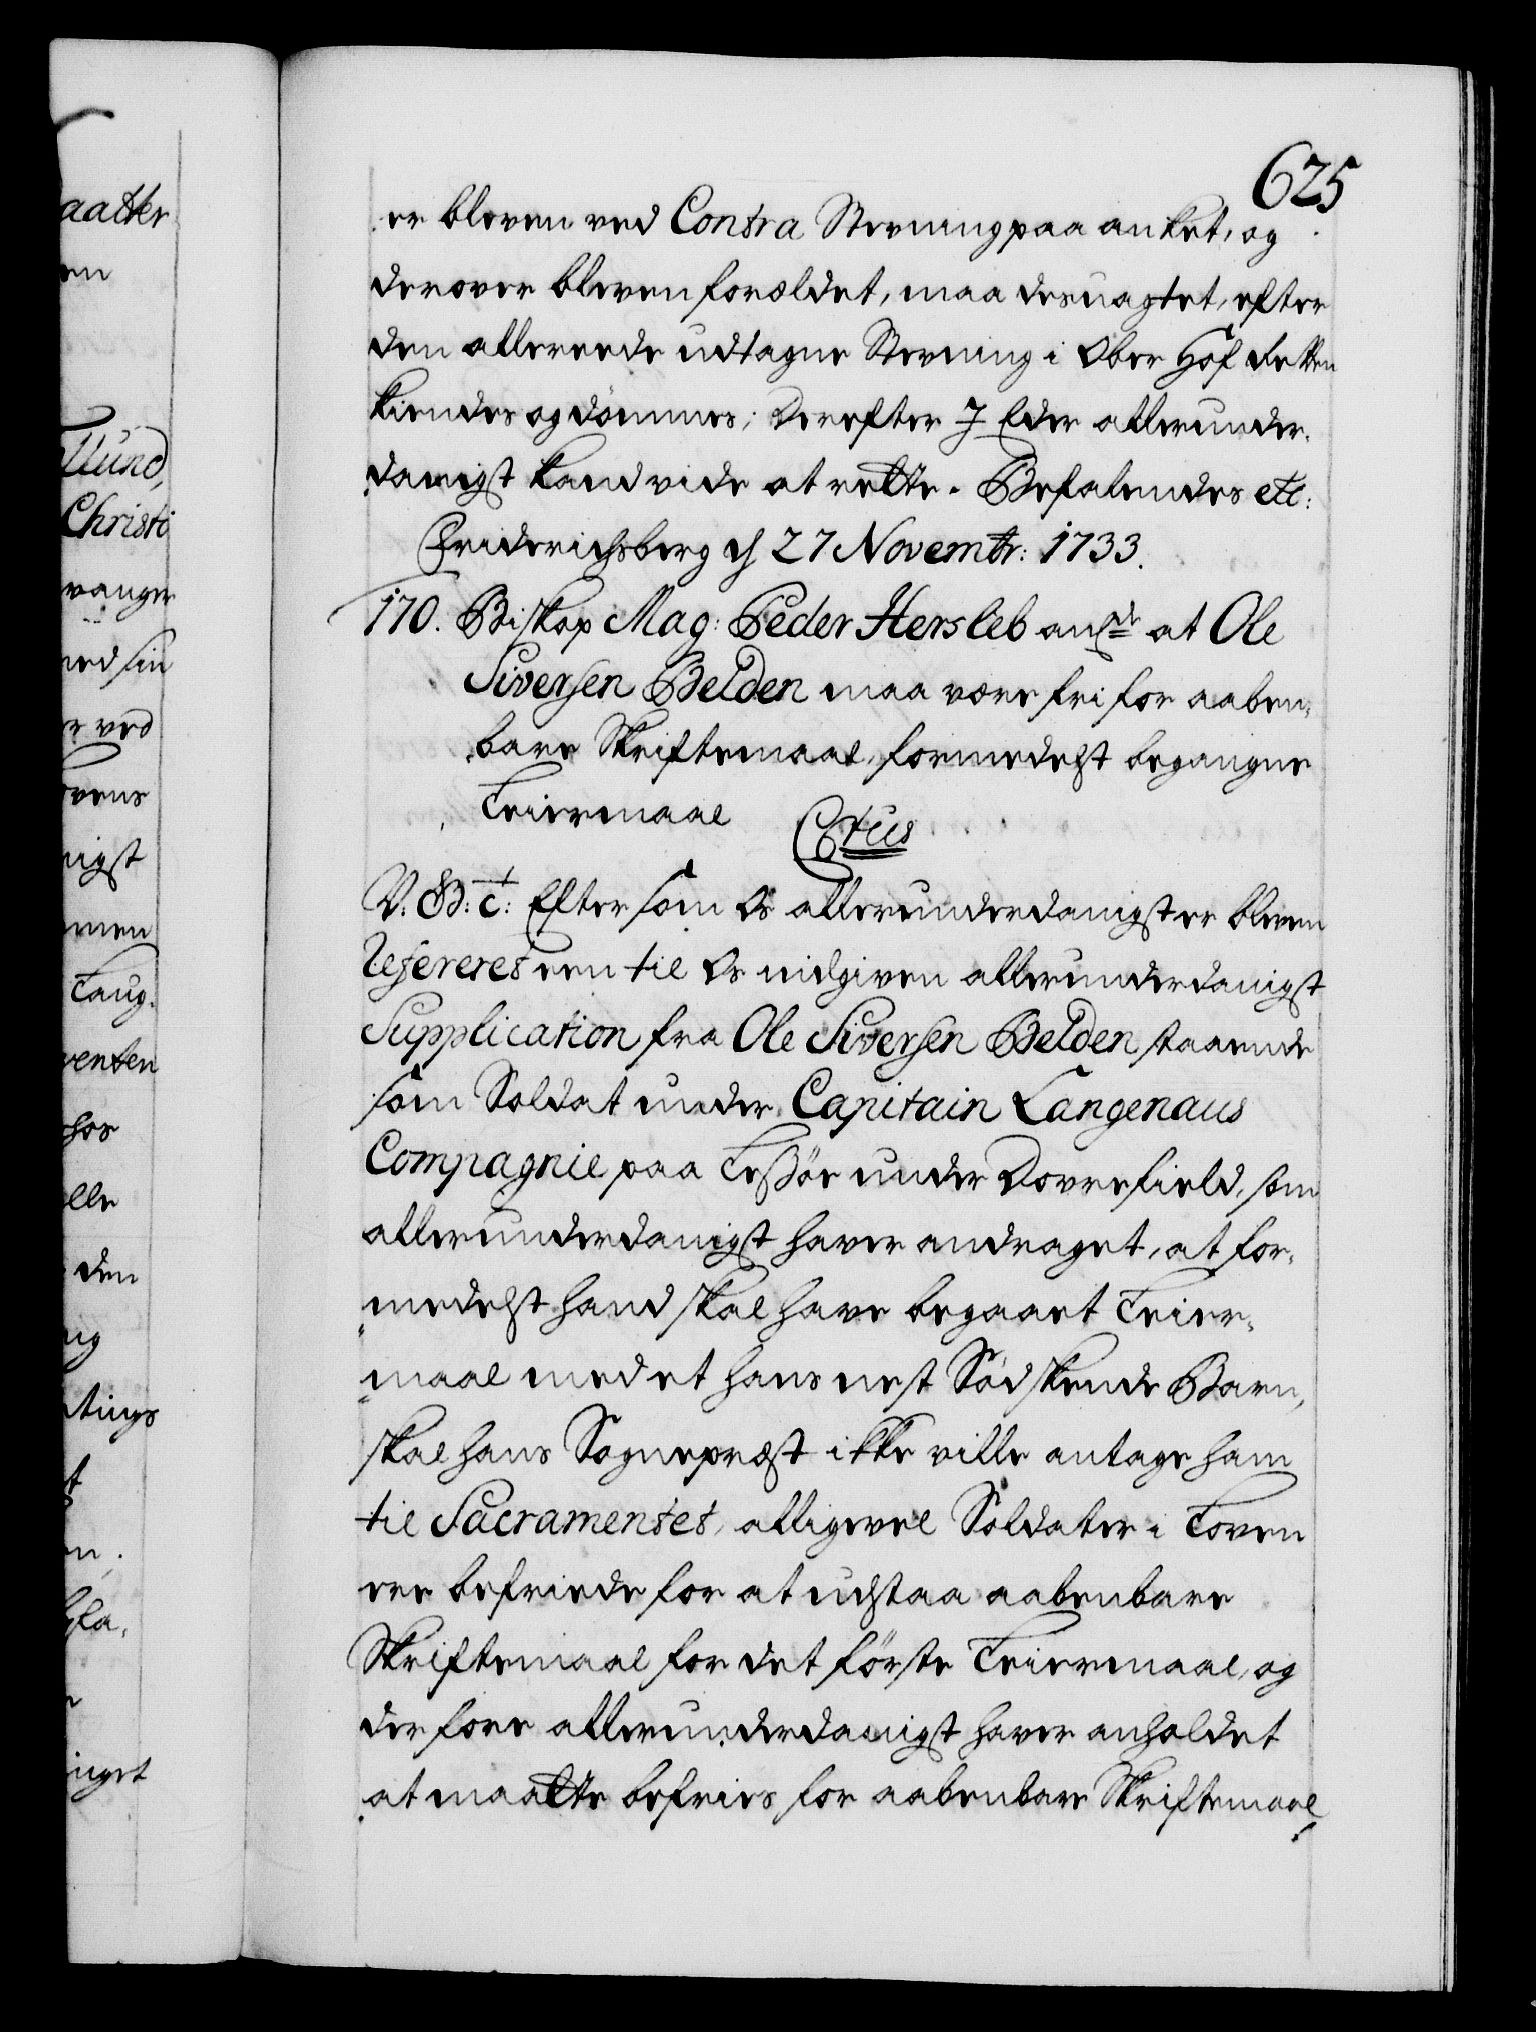 625
er bleven ved Contra Stevning paa anket, og
derover bleven forældet, maa desuagtet, efter
den allereede udtagne Stevning i Ober Hof Retten
kiendes og dömmes; Derefter I Eder allerunder-
danigst kand vide at rette. Befalendes etc:
Friderichsberg d 27 Novembr: 1733.
170. Biskop Mag: Peder Hersleb anlde at Ole
Siversen Belden maa være fri for aaben-
bare Skriftemaal, formedelst begangne
Leiermaal
C6tus
V. G. T. Eftersom Os allerunderdanigst er bleven
refereret een til Os indgiven allerunderdanigst
Supplication fra Ole Siversen Belden staaende
som Soldat under Capitain Langenaus
Compagnie paa Lessöe under Dovrefield, som
allerunderdanigst haver andraget, at for-
medelst hand skal have begaaet Leier-
maal med et hans nest Södskende Barn,
skal hans Sognepræst ikke ville antage ham
til Sacramentet, alligevel Soldater i Loven
ere befriede for at udstaa aabenbare
Skriftemaal for det förste Leiermaal, og
derfore allerunderdanigst haver anholdet
at maatte befries for aabenbare Skriftemaal,
aatter
en
lund,
Christi
vanger
med sin
er ved
ovens
nigst
men
Laug-
venten
hos
elle
den
nig
tings
t
n.
fa,
inget